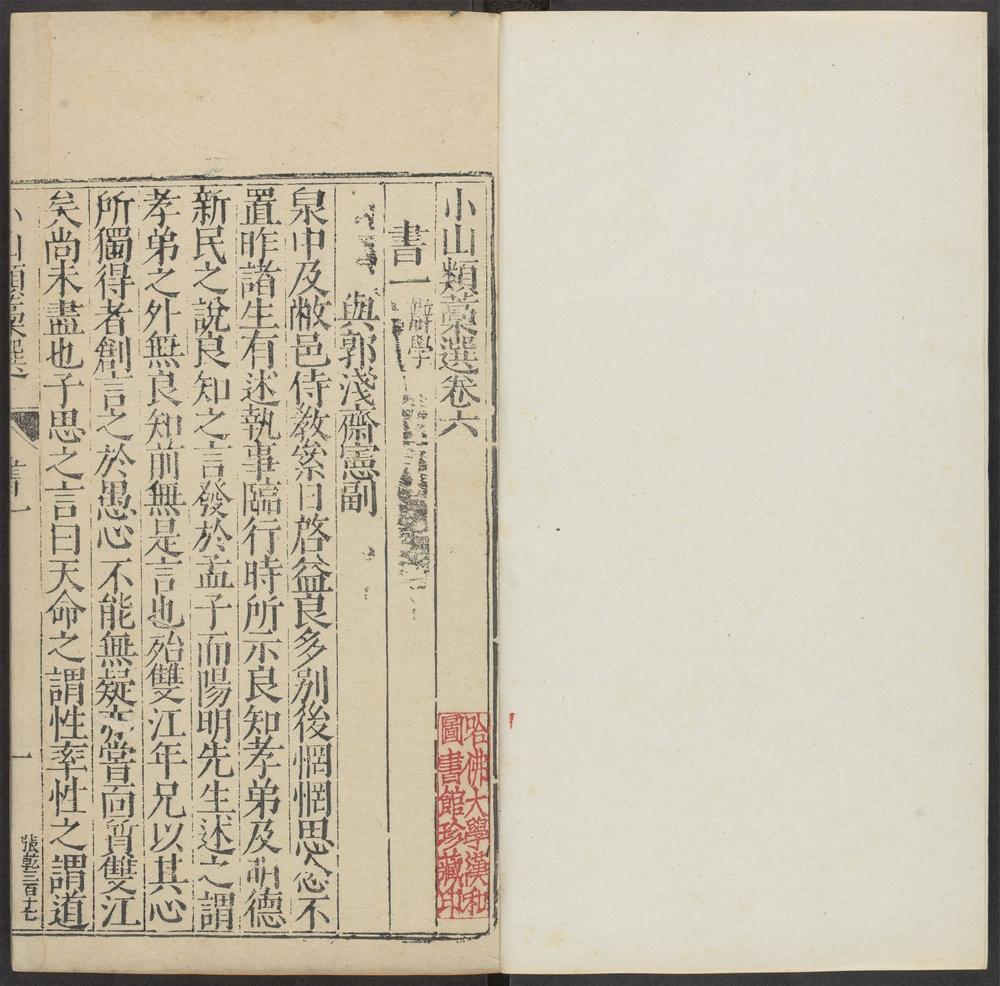 小山類藁選卷六
書一
論學
與郭淺齋憲副
泉中及敝邑侍教累日啓益良多别後惘惘思念不
置昨諸生有述執事臨行時所示良知孝弟及明德
新民之說良知之言發於孟子而陽明先生述之謂
孝弟之外無良知前無是言也殆雙江年兄以其心
所獨得者創言之於愚心不能無疑亦嘗面質雙江
矣尚未盡也子思之言曰天命之謂性率性之謂道
小山類藁選
書一
一
張乾三百十七
哈佛大學漢和
圖書館珍藏印